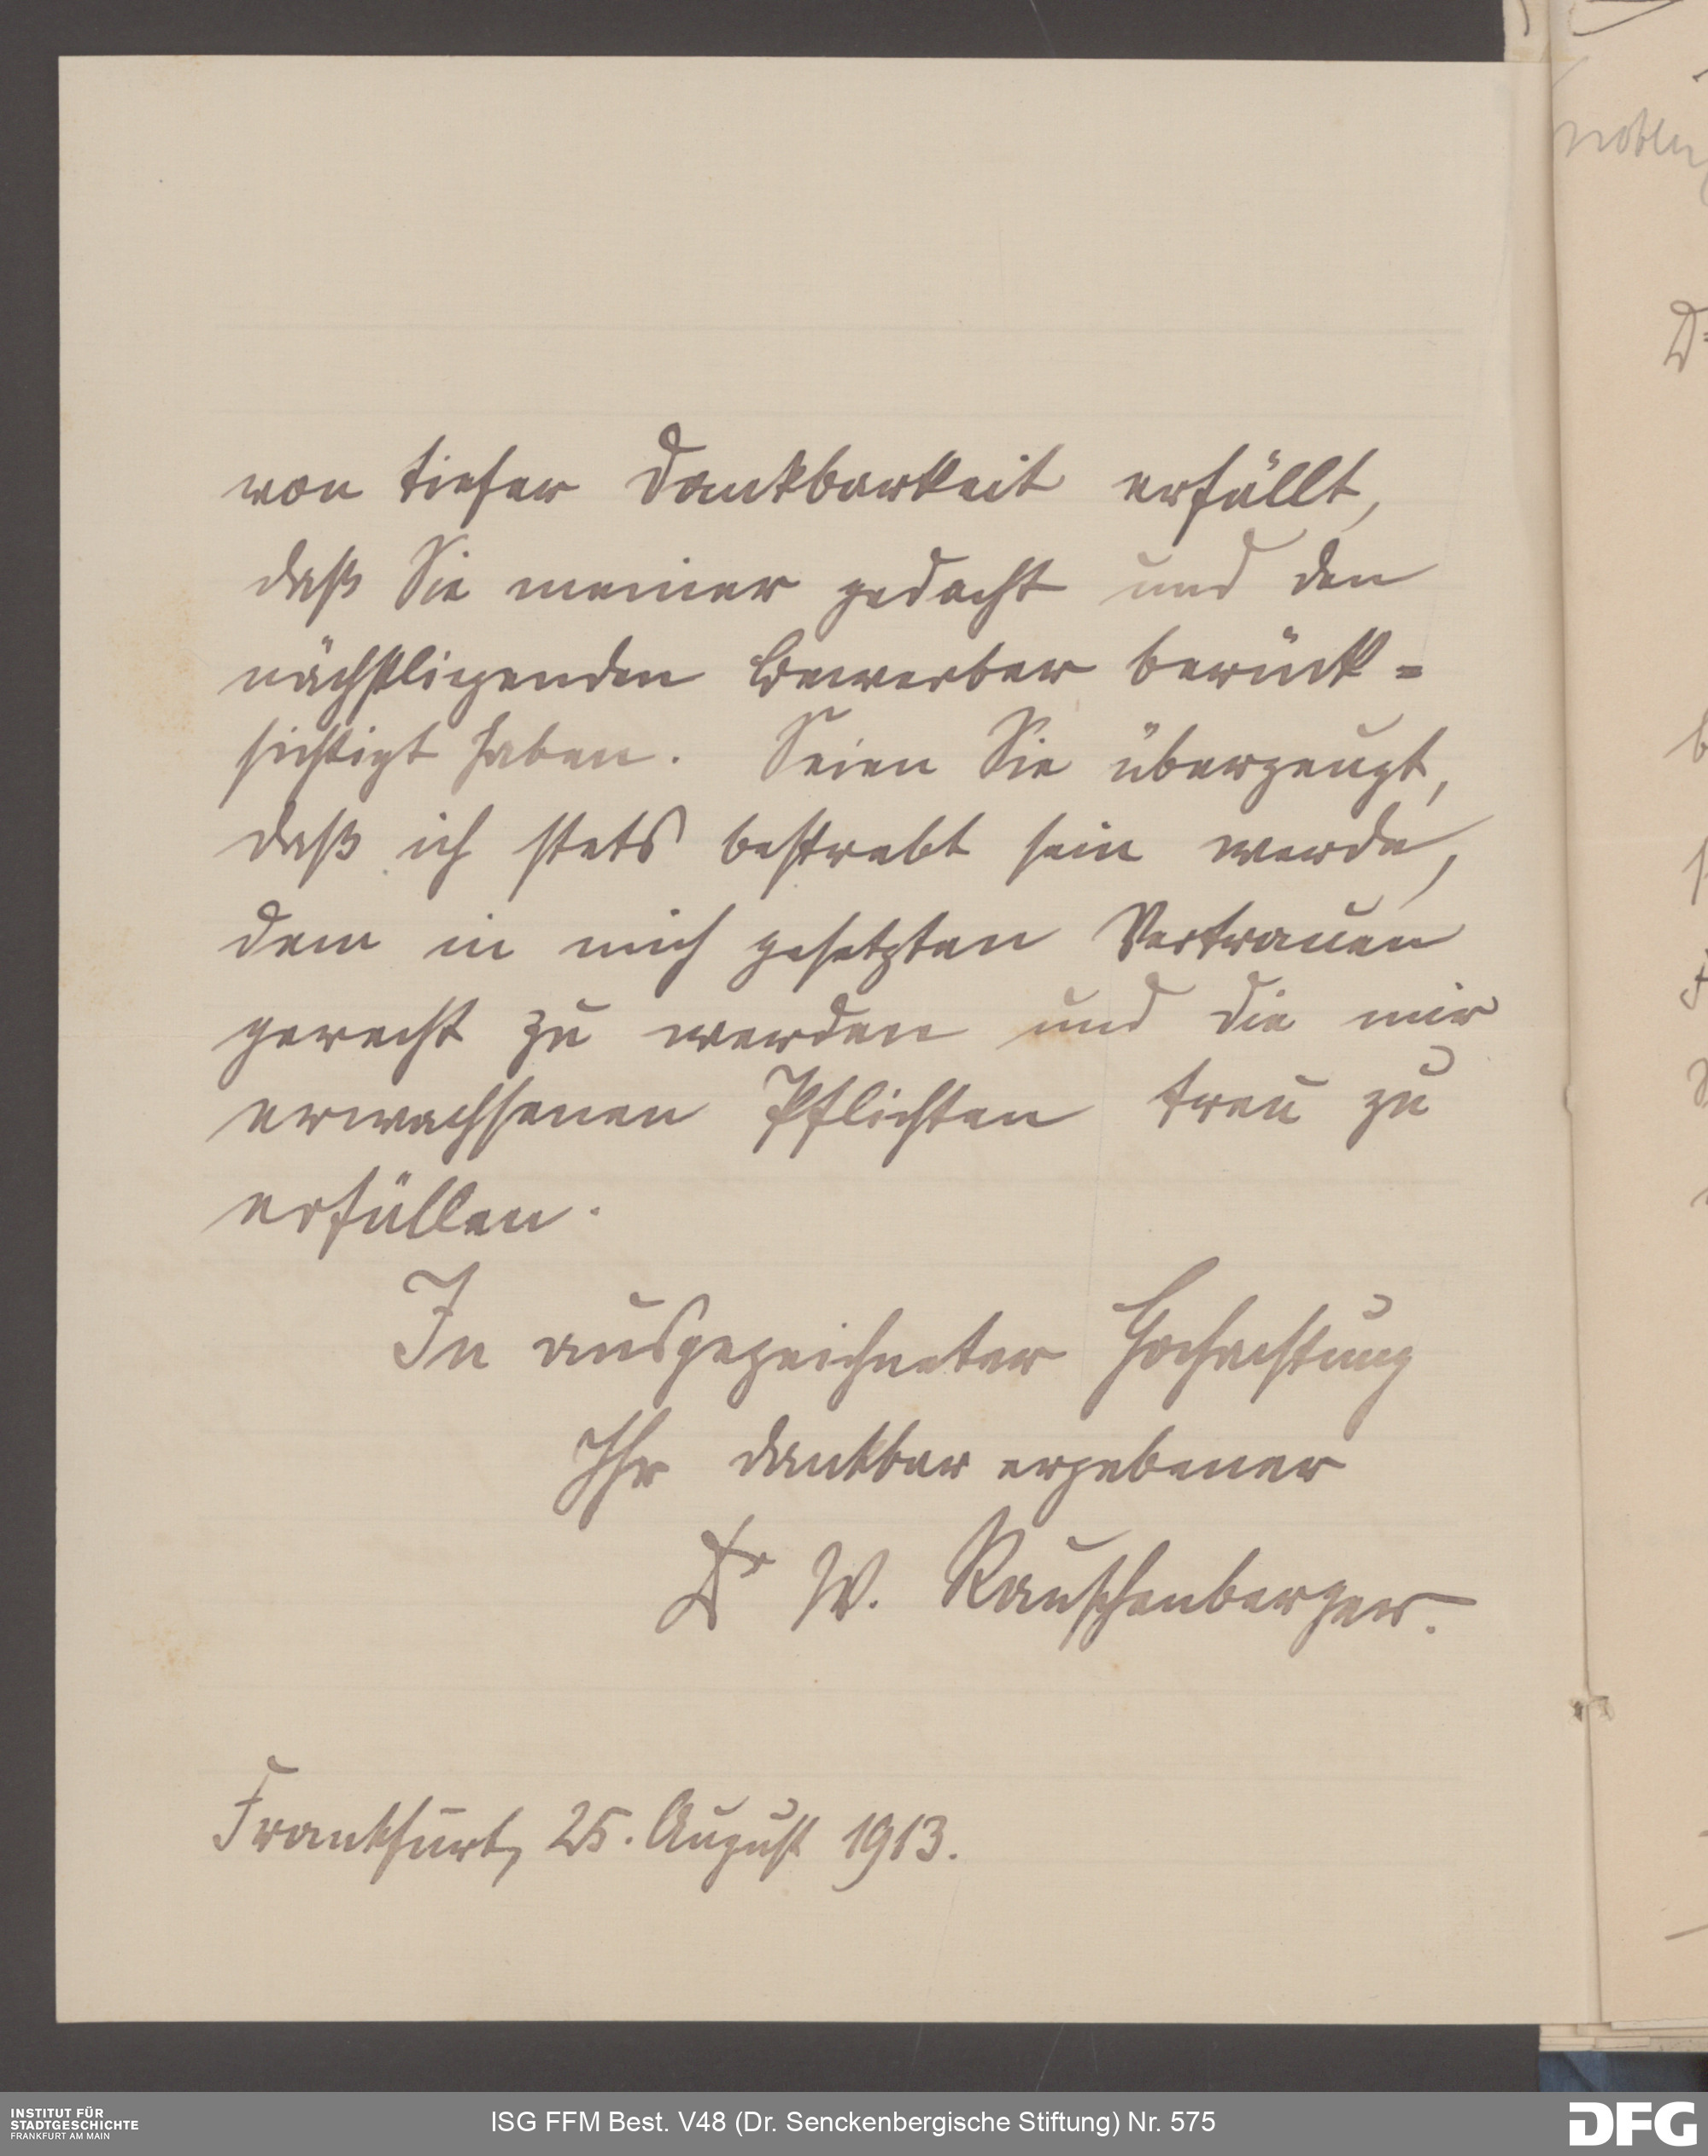 von tiefer Dankbarkeit erfüllt,
daß Sie meiner gedacht und den
nächstliegenden Bewerber berück=
sichtigt haben. Seien Sie überzeugt,
daß ich stets bestrebt sein werde,
dem in mich gesetzten Vertrauen
gerecht zu werden und die mir
erwachsenen Pflichten treu zu
erfüllen.
In ausgezeichneter Hochachtung
Ihr dankbar ergebener
Dr W. Rauschenberger.
Frankfurt, 25. August 1913.
INSTITUT FÜR
STADTGESCHICHTE
FRANKFURT AM MAIN
ISG FFM Best. V48 (Dr. Senckenbergische Stiftung) Nr. 575
DFG